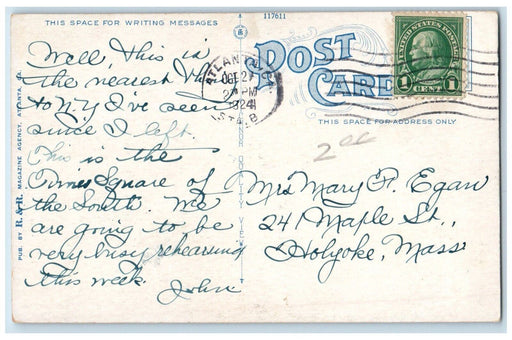 THIS SPACE FOR WRITING MESSAGES
117611
POST
CARD
UNITED STATES POSTAGE
1 1
CENT
ATLANTA, GA.
OCT 27
PM
1924
STA. B
THIS SPACE FOR ADDRESS ONLY
2 00
PUB. BY R. & R. MAGAZINE AGENCY, ATLANTA, GA.
Well, this is
the nearest thing
to N.Y. I've seen
since I left.
This is the
Times Square of
the South. We
are going to be
very busy rehearsing
this week.
John
Mrs Mary F. Egan
241 Maple St.,
Holyoke, Mass